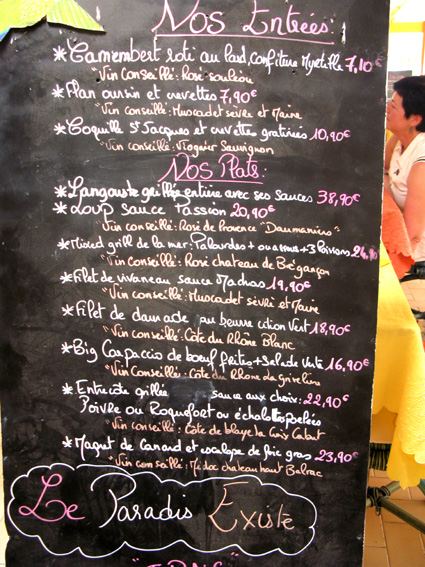 Nos Entrées:
*Camembert roti au lard, confiture Myrtille 7,10€
Vin Conseillé: Rosé souleou
*Flan oursin et crevettes 7,90€
"Vin conseillé: Muscadet sèvre et Maine
*Coquille St Jacques et crevettes gratinées 10,90€
"Vin conseillé: Viognier Sauvignon
Nos Plats:
*Langouste grillée entière avec ses sauces 38,90€
*Loup sauce Passion 20,90€
Vin conseillé: Rosé de Provence "Daumanieu"
*Mixed grill de la mer: Palourdes + + 3 Poissons
"Vin conseillé: Rosé chateau de Brégançon
*Filet de vivaneau sauce Madras 19,90€
"Vin conseillé: Muscadet sèvre et Maine
*Filet de daurade au beurre citron Vert 18,90€
"Vin Conseillé: Côte du Rhône Blanc
*Big Carpaccio de bœuf frites + Salade Verte 16,90€
"Vin Conseillé: Côte du Rhone La Griveline
*Entrecôte grillée sauce aux choix: 22,90€
Poivre ou Roquefort ou échalottes poelées
"Vin conseillé: Cote de blaye la Croix Cabut
*Magret de Canard et escalope de foie gras 23,90€
"Vin conseillé: Médoc chateau haut Balirac
Le Paradis Existe